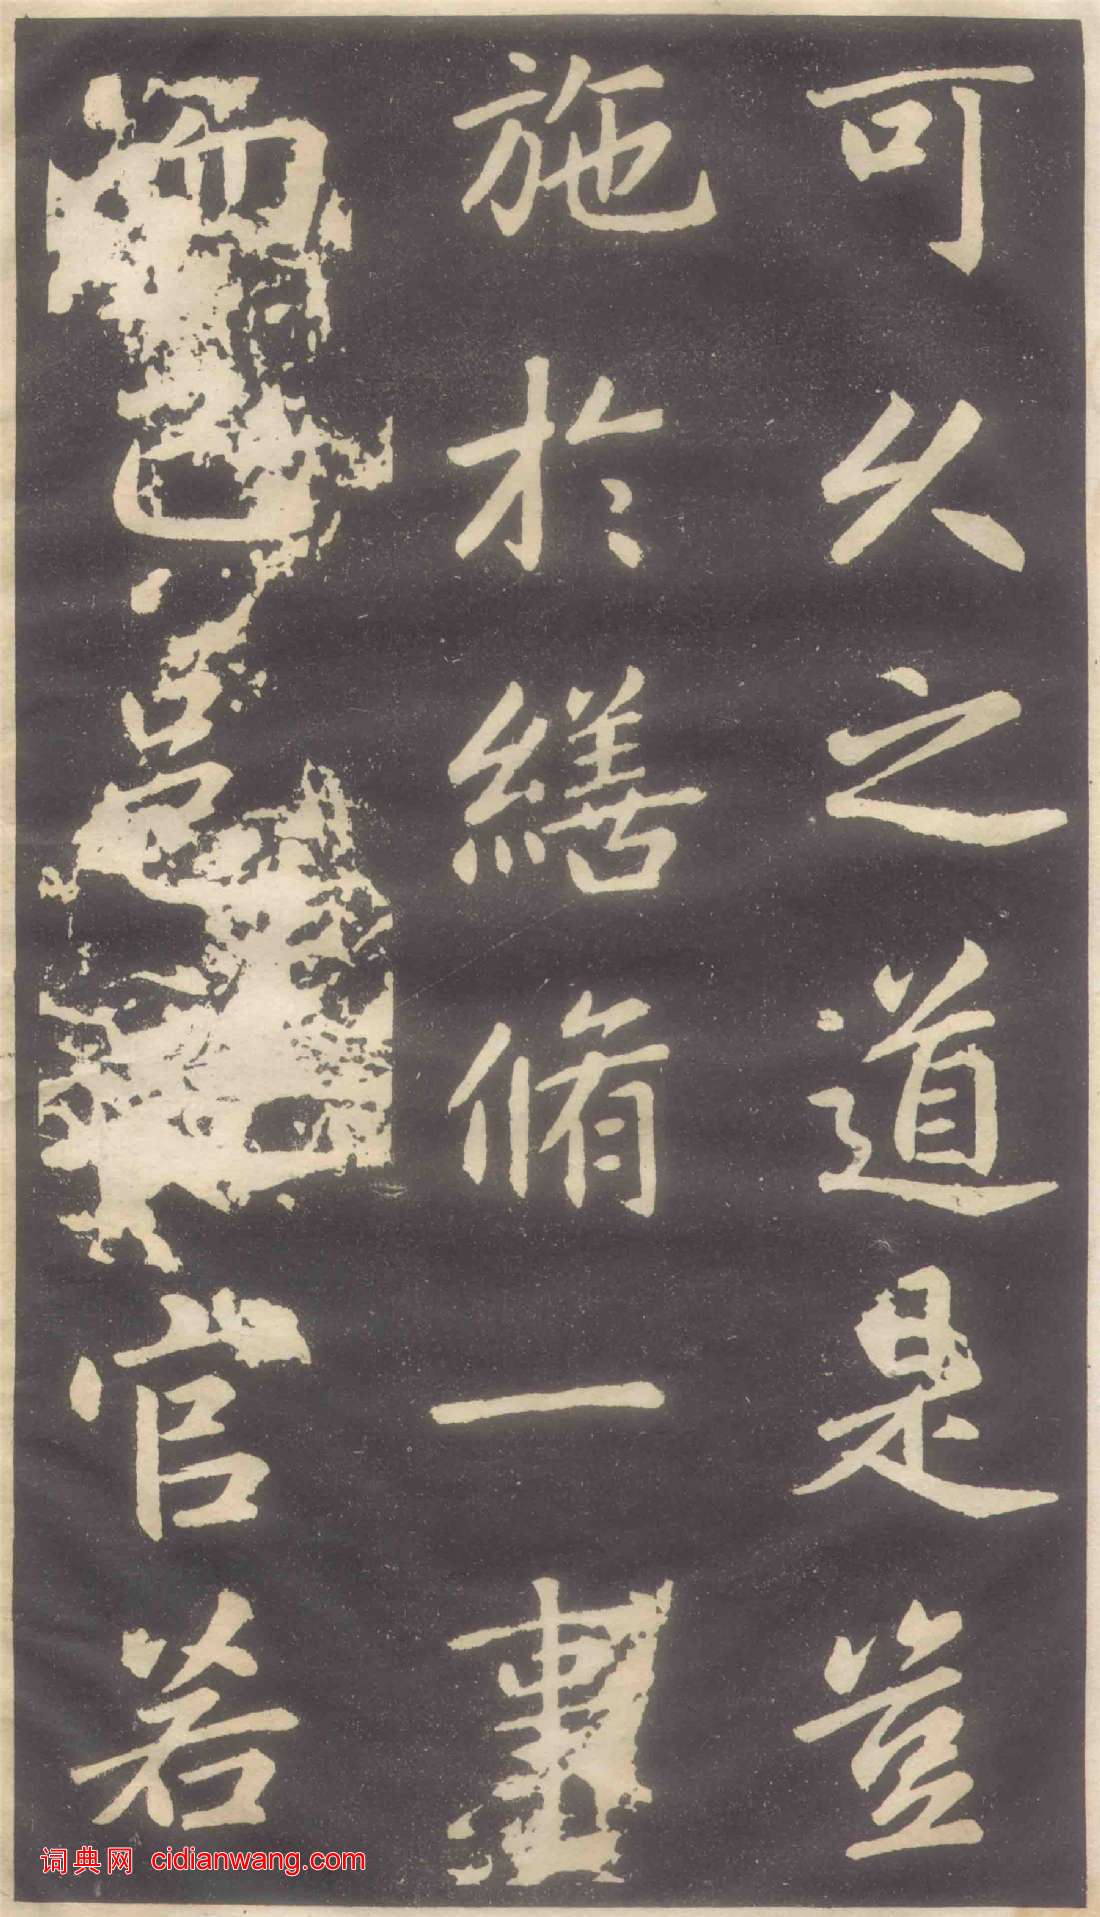 可久之道是豈
施於繕脩一晝
而已邑官若
词典网 cidianwang.com